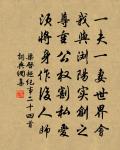 一夫一妻世界會
我與瀏陽實創之
尊重公權割私愛
須將身作後人師
梁啓超紀事二十四首
典網集